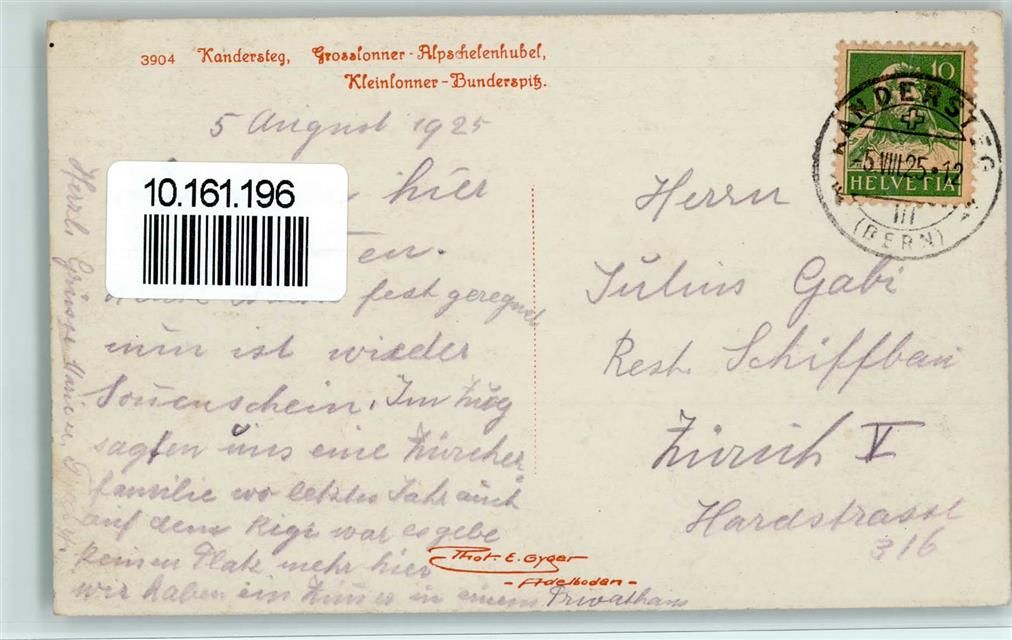 3904 Kandersteg, Grosslonner-Alpschelenhubel,
Kleinlonner-Bunderspitz.
5 August 1925
10.161.196
hier
fest geregnet
nun ist wieder
Sonnenschein. Im Zug
sagten uns eine Zürcher
familie wo letztes Jahr auch
auf dem Rigi war es gebe
keinen Platz mehr hier
wir haben ein Zimmer in einem Privathaus
Herzl. Grüsse
Herrn
Julius Gabi
Rest. Schiffbau
Zürich V
Hardstrasse
316
10
HELVETIA
KANDERSTEG
-5.VIII.25•12
III
(BERN)
Phot. E. Gyger
- Adelboden -